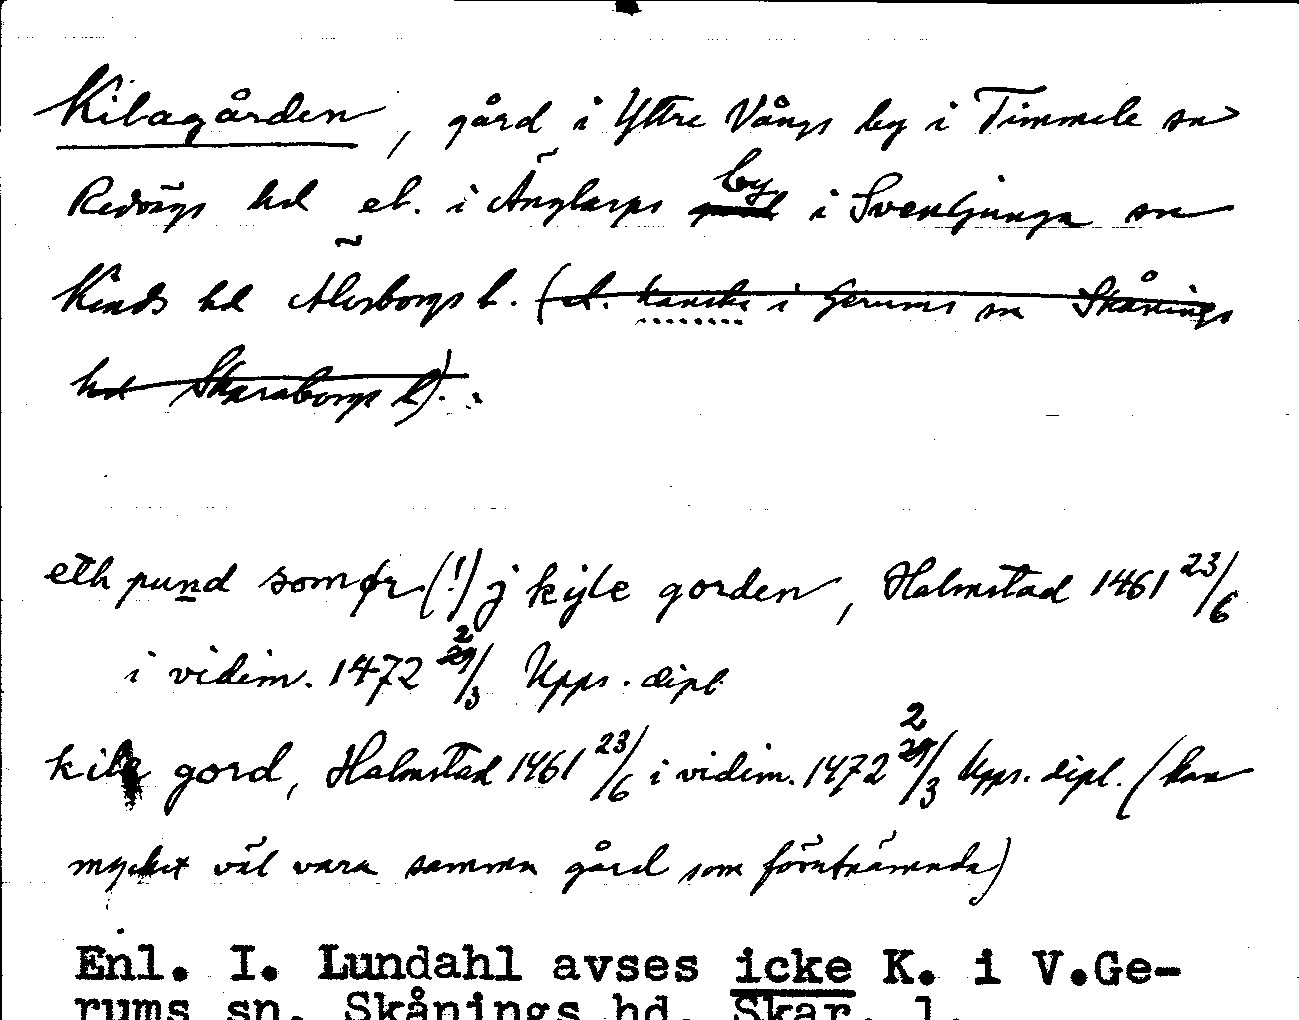 Kilagården, gård i Yttre Vångs by i Timmele sn
Redvägs hd el. i Änglarps by i Svenljunga sn
Kinds hd Älvsborgs l. (el. kanske i Gerums sn Skånings
hd Skaraborgs l).
eth pund som ør (!) j kyle gorden, Halmstad 1461 23/6
i vidim. 1472 2/3 Upps. dipl.
kila gord, Halmstad 1461 23/6 i vidim. 1472 2/3 Upps. dipl. (kan
mycket väl vara samma gård som företrädande)
Enl. I. Lundahl avses icke K. i V.Ge-
rums sn. Skånings hd. Skar. l.